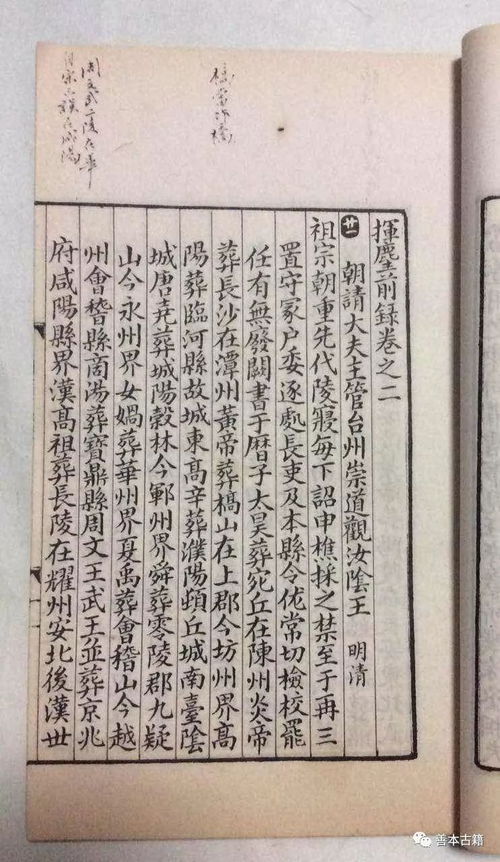 揮塵前録卷之二
廿一 朝請大夫主管台州崇道觀汝陰王 明清
祖宗朝重先代陵寢每下詔申樵採之禁至于再三
置守冢户委逐處長吏及本縣令佐常切檢校罷
任有無發闕書于曆子太昊葬宛丘在陳州炎帝
葬長沙在潭州黃帝葬槗山在上郡今坊州界髙
陽葬臨河縣故城東髙辛葬濮陽頓丘城南臺陰
城唐堯葬城陽穀林今鄆州界舜葬零陵郡九疑
山今永州界女媧葬華州界夏禹葬會稽山今越
州會稽縣商湯葬寶鼎縣周文王武王並葬京兆
府咸陽縣界漢髙祖葬長陵在耀州安北後漢丗
周文武二陵在
善本古籍